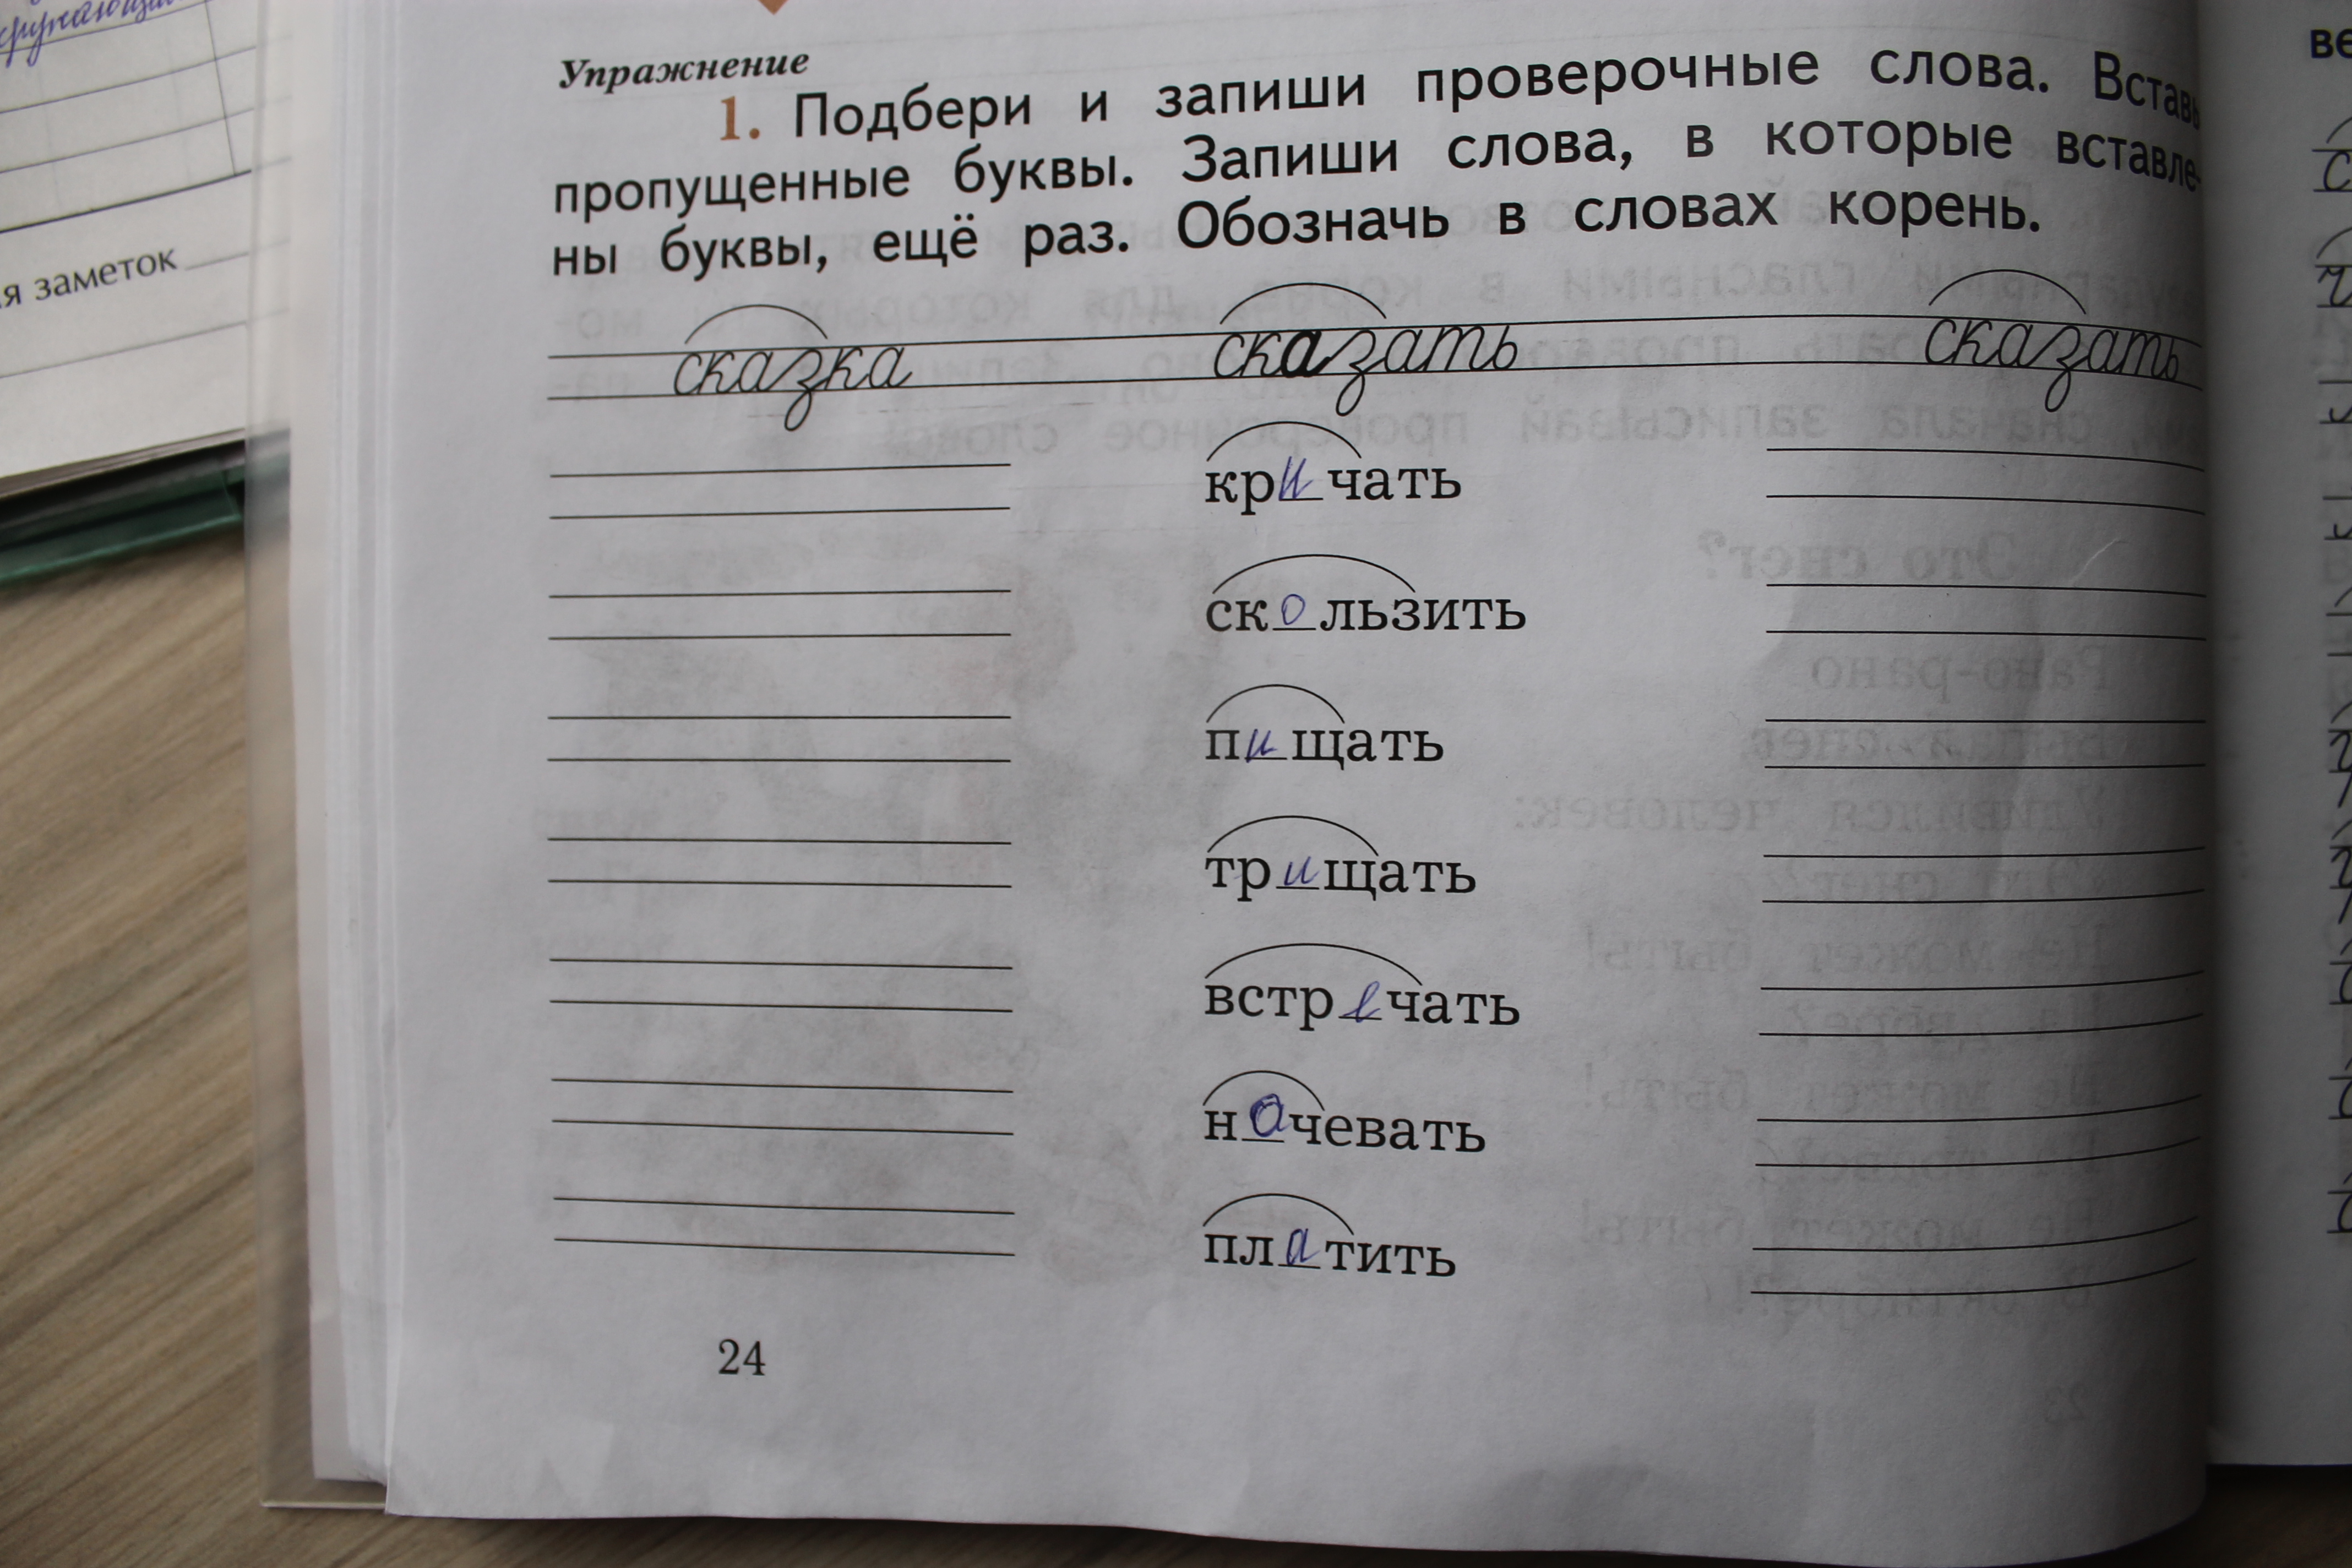 я заметок
Упражнение
1. Подбери и запиши проверочные слова. Вставь
пропущенные буквы. Запиши слова, в которые вставле-
ны буквы, ещё раз. Обозначь в словах корень.
сказка сказать сказать
кричать
скользить
пищать
трищать
встречать
ночевать
платить
24